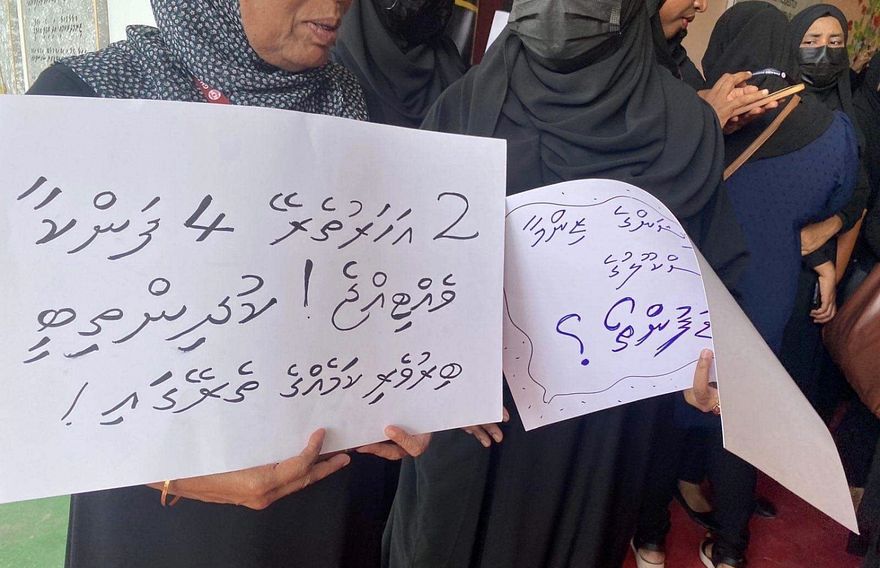 2 އަހަރުތެރޭ 4 ފަންކާ
ވެއްޓިއްޖެ! ކުދީންތިބީ
ބިރުވެރި ކަމެއްގެ ތެރޭގައި!
ޒިންމާ
ސްކޫލުގެ